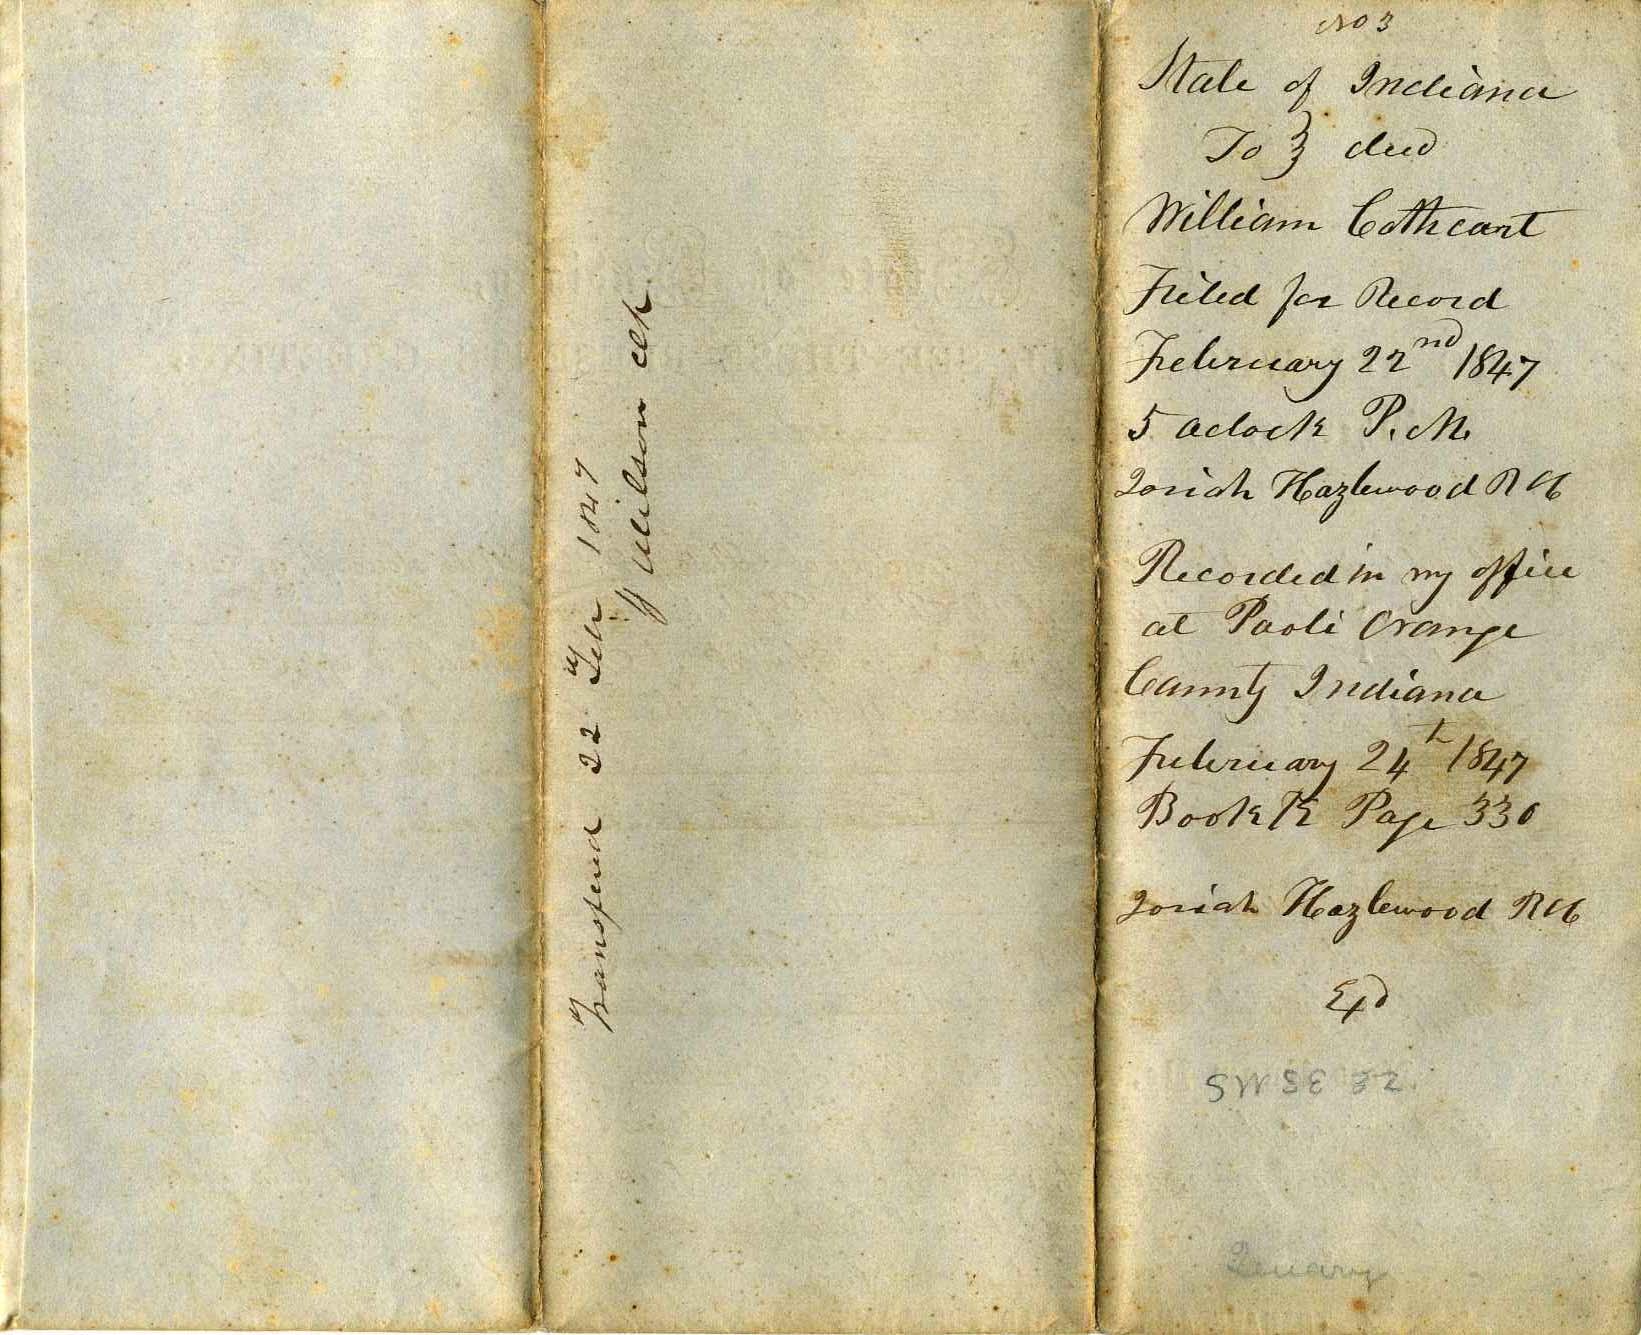 No 3
State of Indiana
To } deed
William Cathcart
Filed for Record
February 22nd 1847
5 oclock P. M.
Josiah Hazlewood R O C
Recorded in my office
at Paoli Orange
County Indiana
February 24th 1847
Book K Page 330
Josiah Hazlewood R O C
Exd
SW SE 32
Transfered 22 Feb 1847
Wilson clk